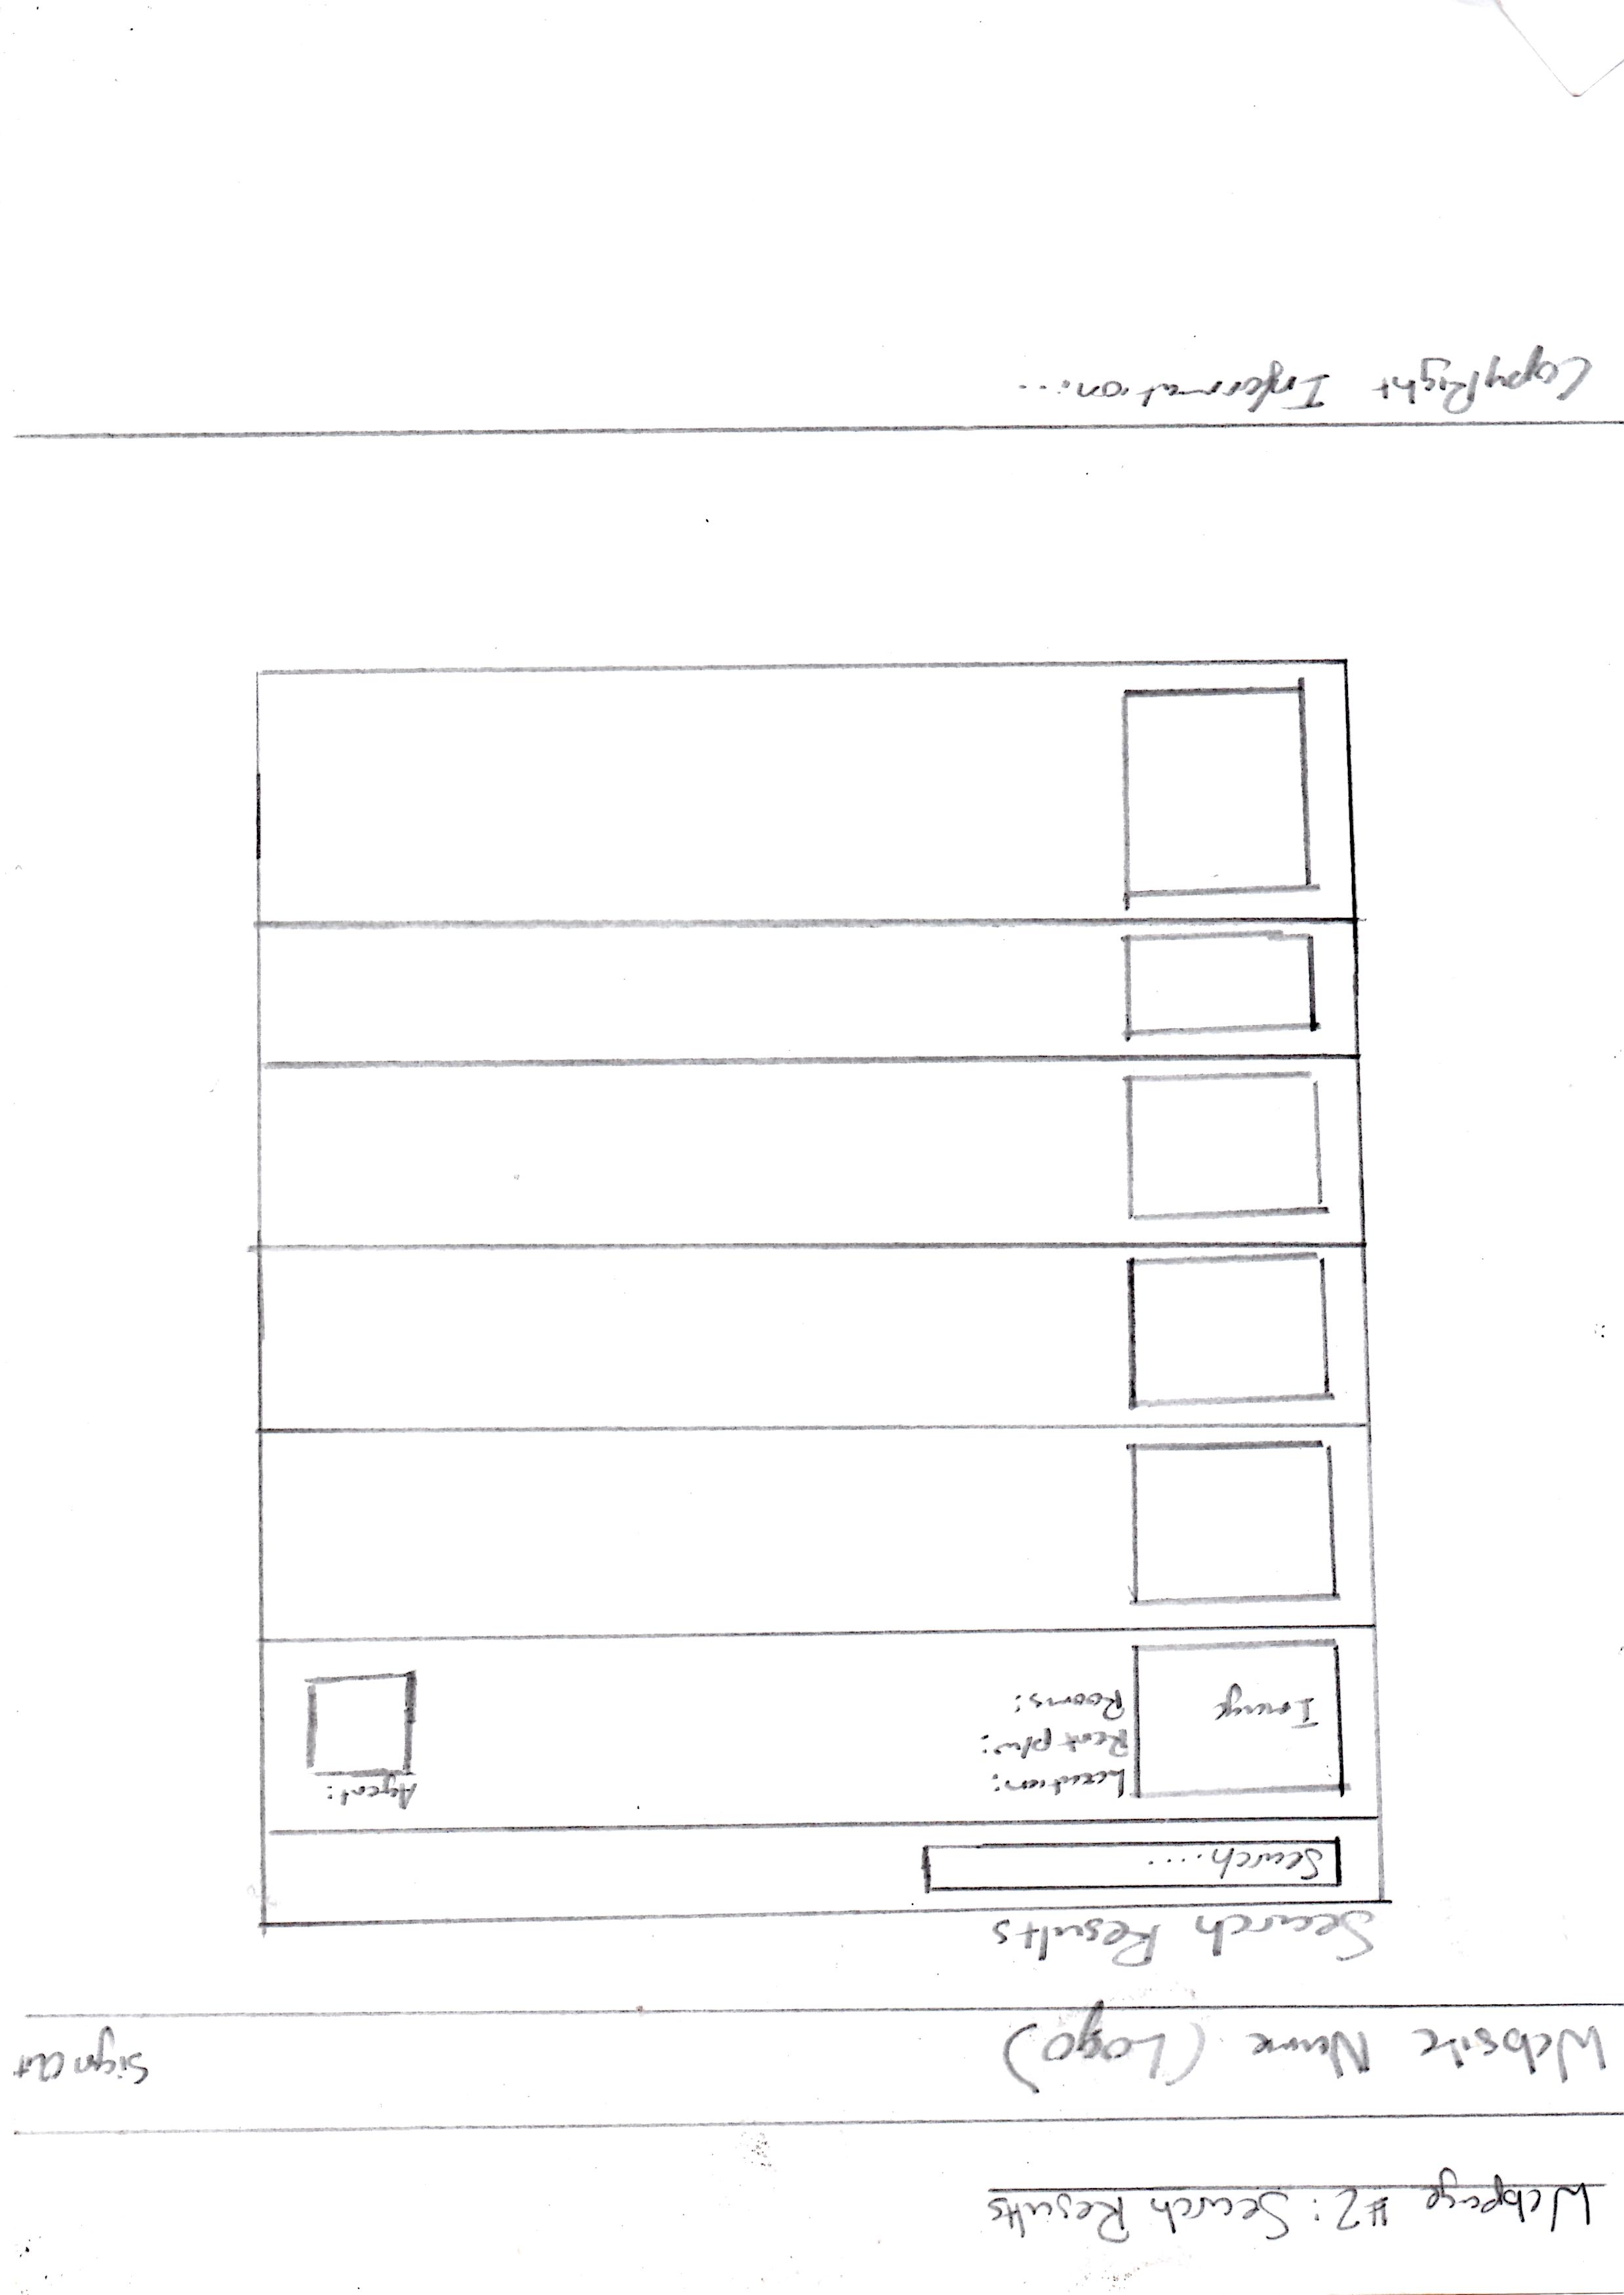 Webpage #2: Search Results
Website Name (Logo)
Sign Out
Search Results
Search....
Image
Location:
Rent p/w:
Rooms:
Agent:
CopyRight Information...